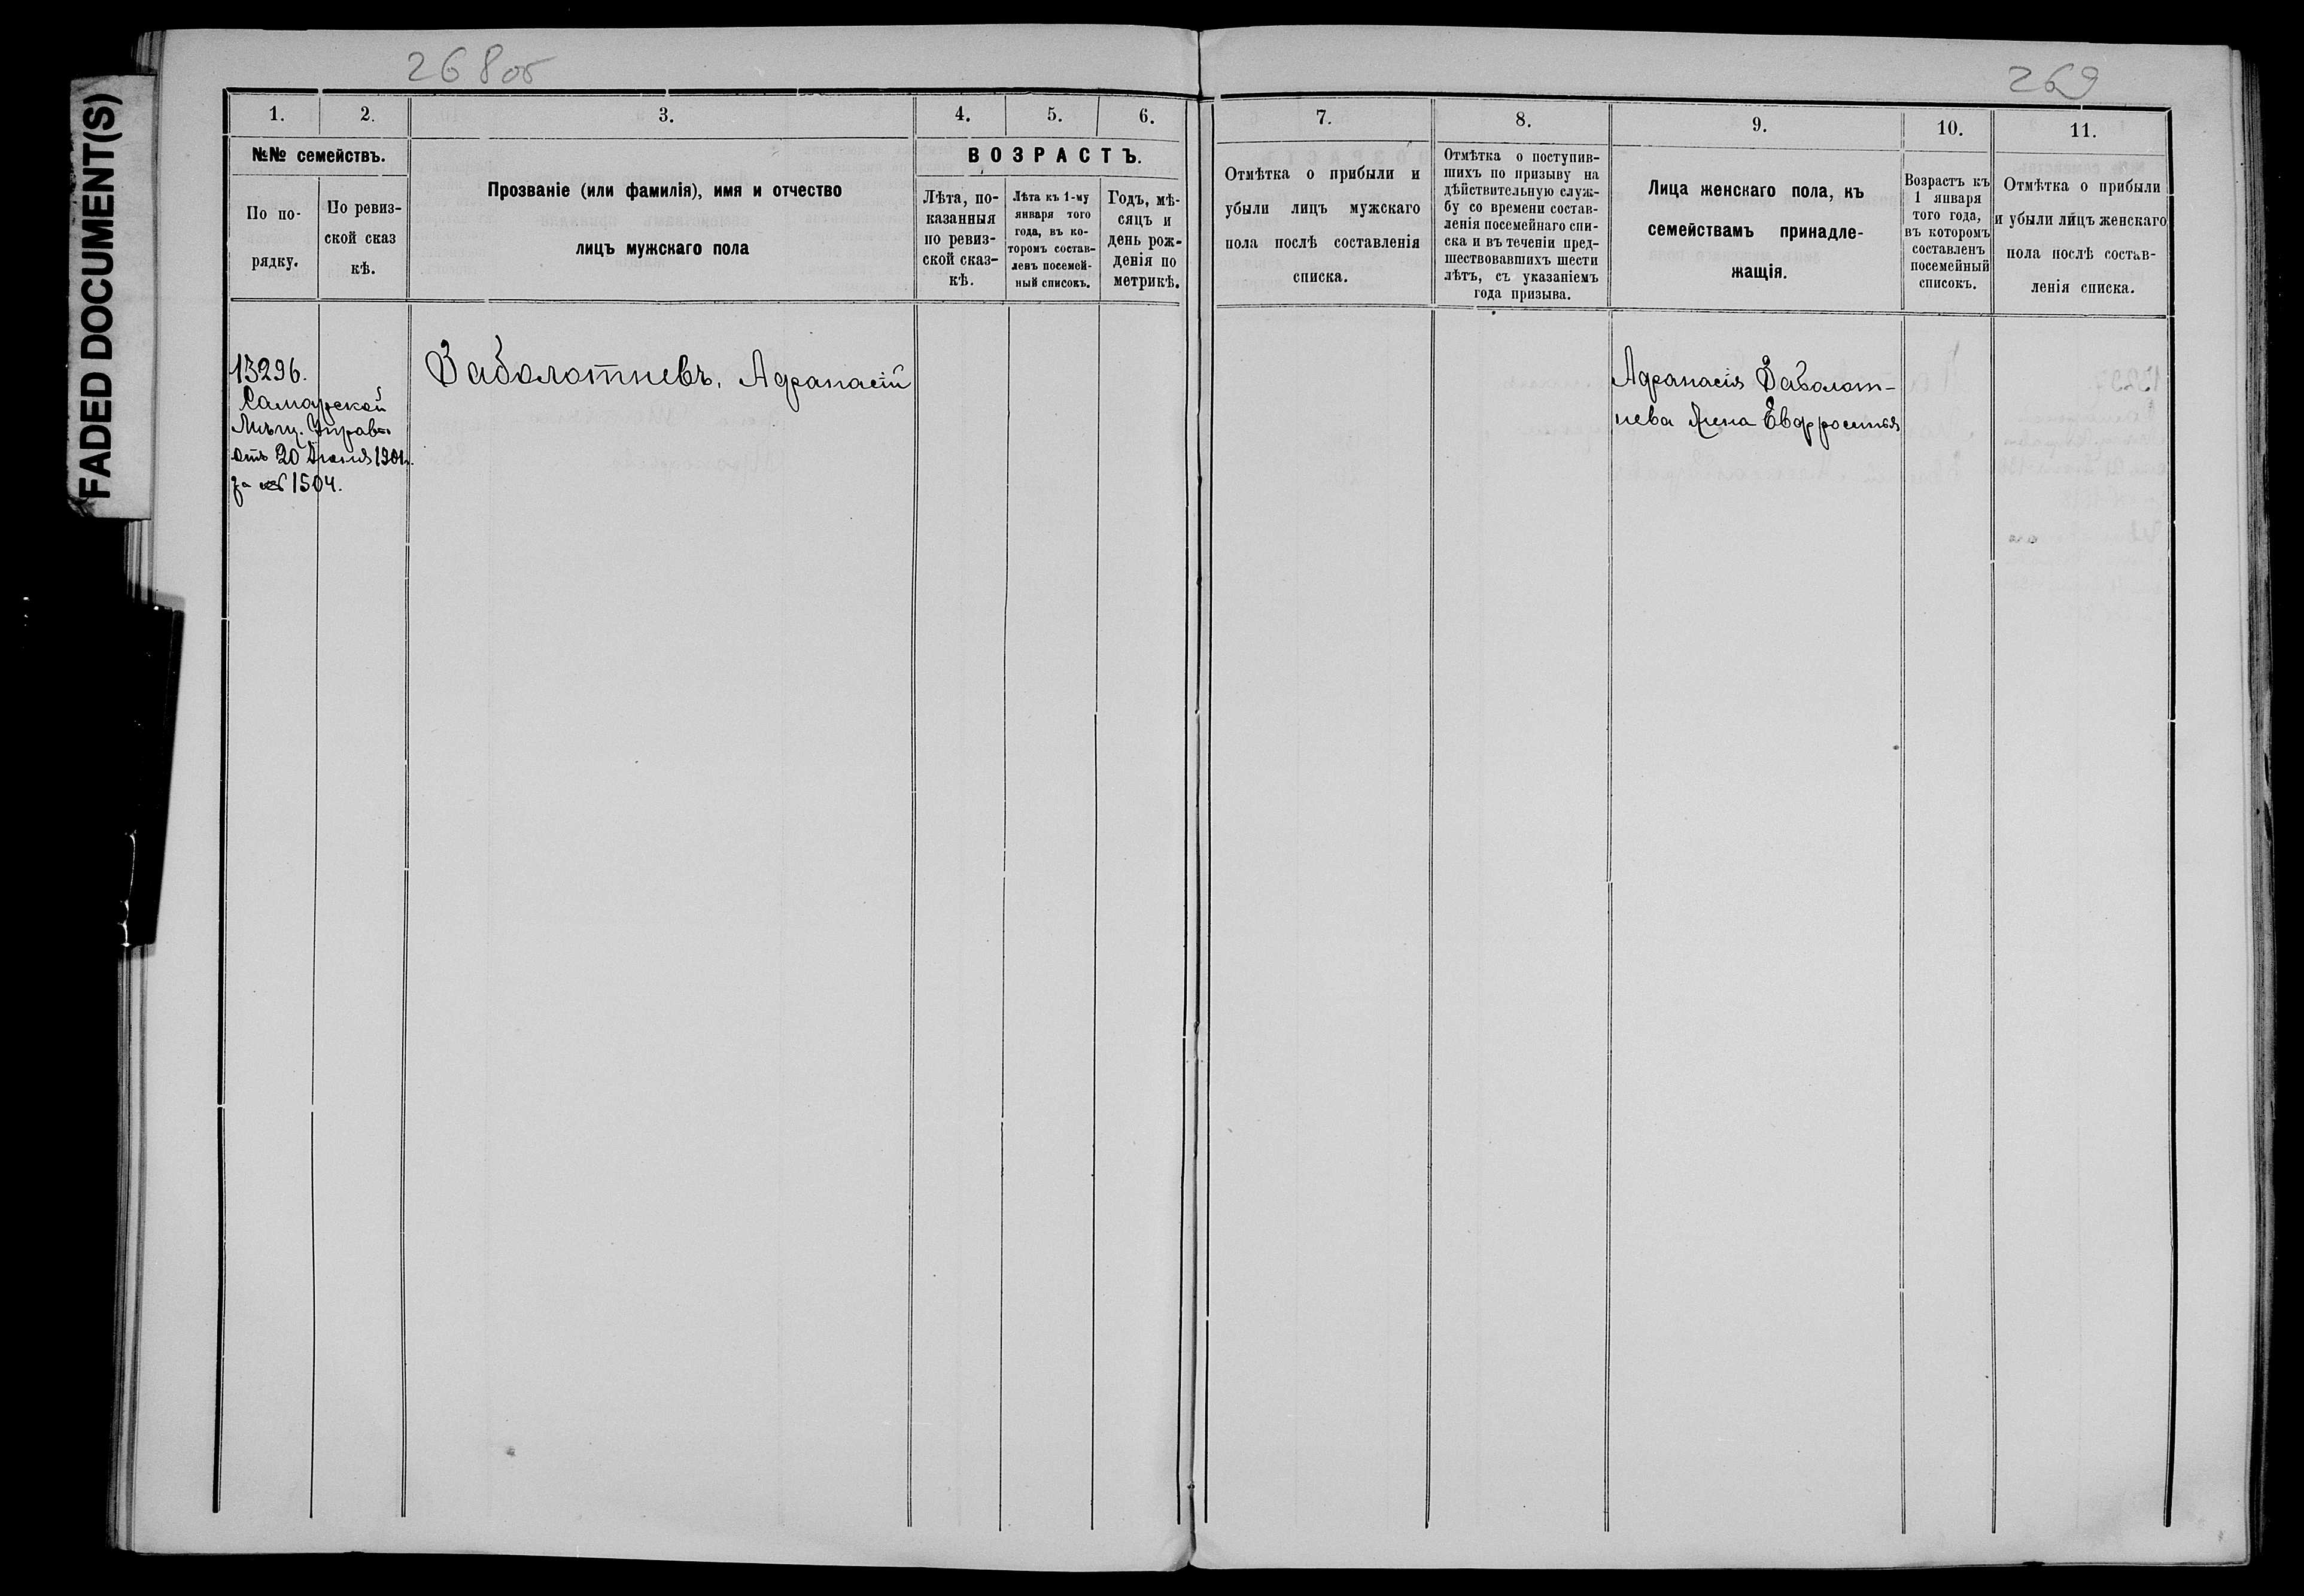 FADED DOCUMENT(S)
268об
269
1.
2.
3.
4.
5.
6.
№№ семействъ.
По по-
рядку.
По ревиз-
ской сказ
кѣ.
Прозваніе (или фамилія), имя и отчество
лицъ мужскаго пола
ВОЗРАСТЪ.
Лѣта, по-
казанныя
по ревиз-
ской сказ-
кѣ.
Лѣта къ 1-му
января того
года, въ ко-
торомъ состав-
ленъ посемей-
ный списокъ.
Годъ, мѣ-
сяцъ и
день рож-
денія по
метрикѣ.
13296.
Самарской
Мѣщ. Управы
отъ 20 Іюня 1901г.
за № 1504.
Заболотневъ, Афанасій
7.
8.
9.
10.
11.
Отмѣтка о прибыли и
убыли лицъ мужскаго
пола послѣ составленія
списка.
Отмѣтка о поступив-
шихъ по призыву на
дѣйствительную служ-
бу со времени состав-
ленія посемейнаго спи-
ска и въ теченіи пред-
шествовавшихъ шести
лѣтъ, съ указаніемъ
года призыва.
Лица женскаго пола, къ
семействамъ принадле-
жащія.
Возрастъ къ
1 января
того года,
въ которомъ
составленъ
посемейный
списокъ.
Отмѣтка о прибыли
и убыли лицъ женскаго
пола послѣ состав-
ленія списка.
Афанасія Заболот-
нева жена Евфросинья